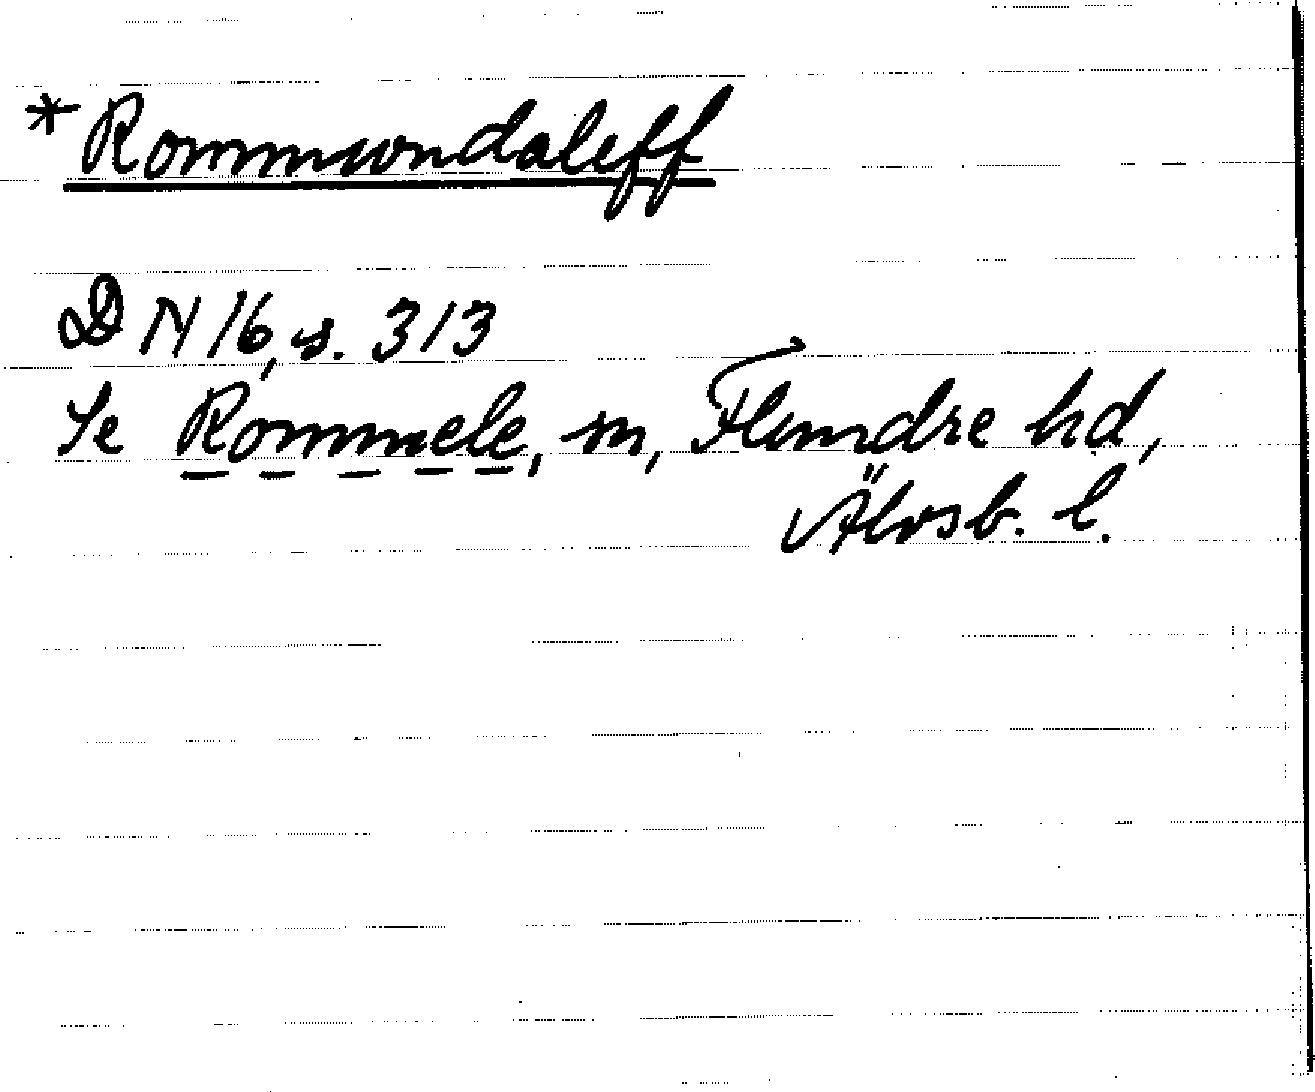 *Rommwndaleff
DN 16, s. 313
Se Rommele, sn, Flundre hd,
Älvsb. l.